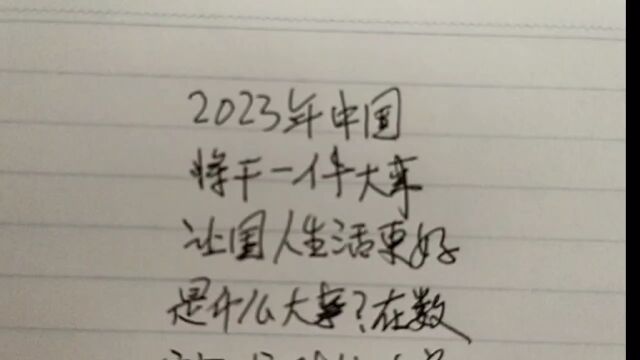 2023年中国
将干一件大事
让国人生活更好
是什么大事?在数